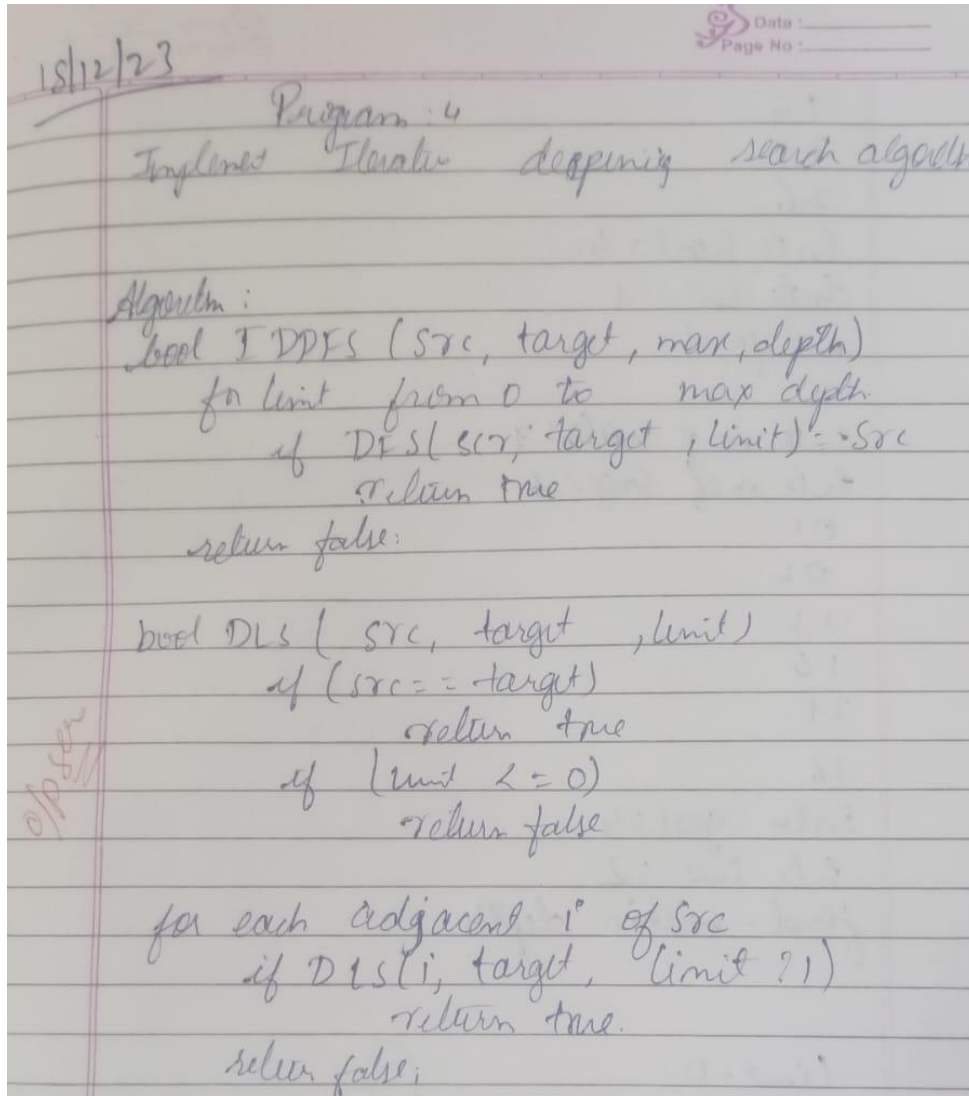 Date :
Page No :
15/12/23
Program : 4
Implement Iterative deepening search algorith
Algorithm :
bool IDDFS (src, target, max, depth)
for limit from 0 to max depth
if DFS( scr, target , limit) = = src
return true
return false:
bool DLS ( src, target , limit)
if (src = = target)
return true
if (limit < = 0)
return false
o/p seen
for each adjacent i of src
if DLS(i, target, limit ? 1)
return true.
return false;